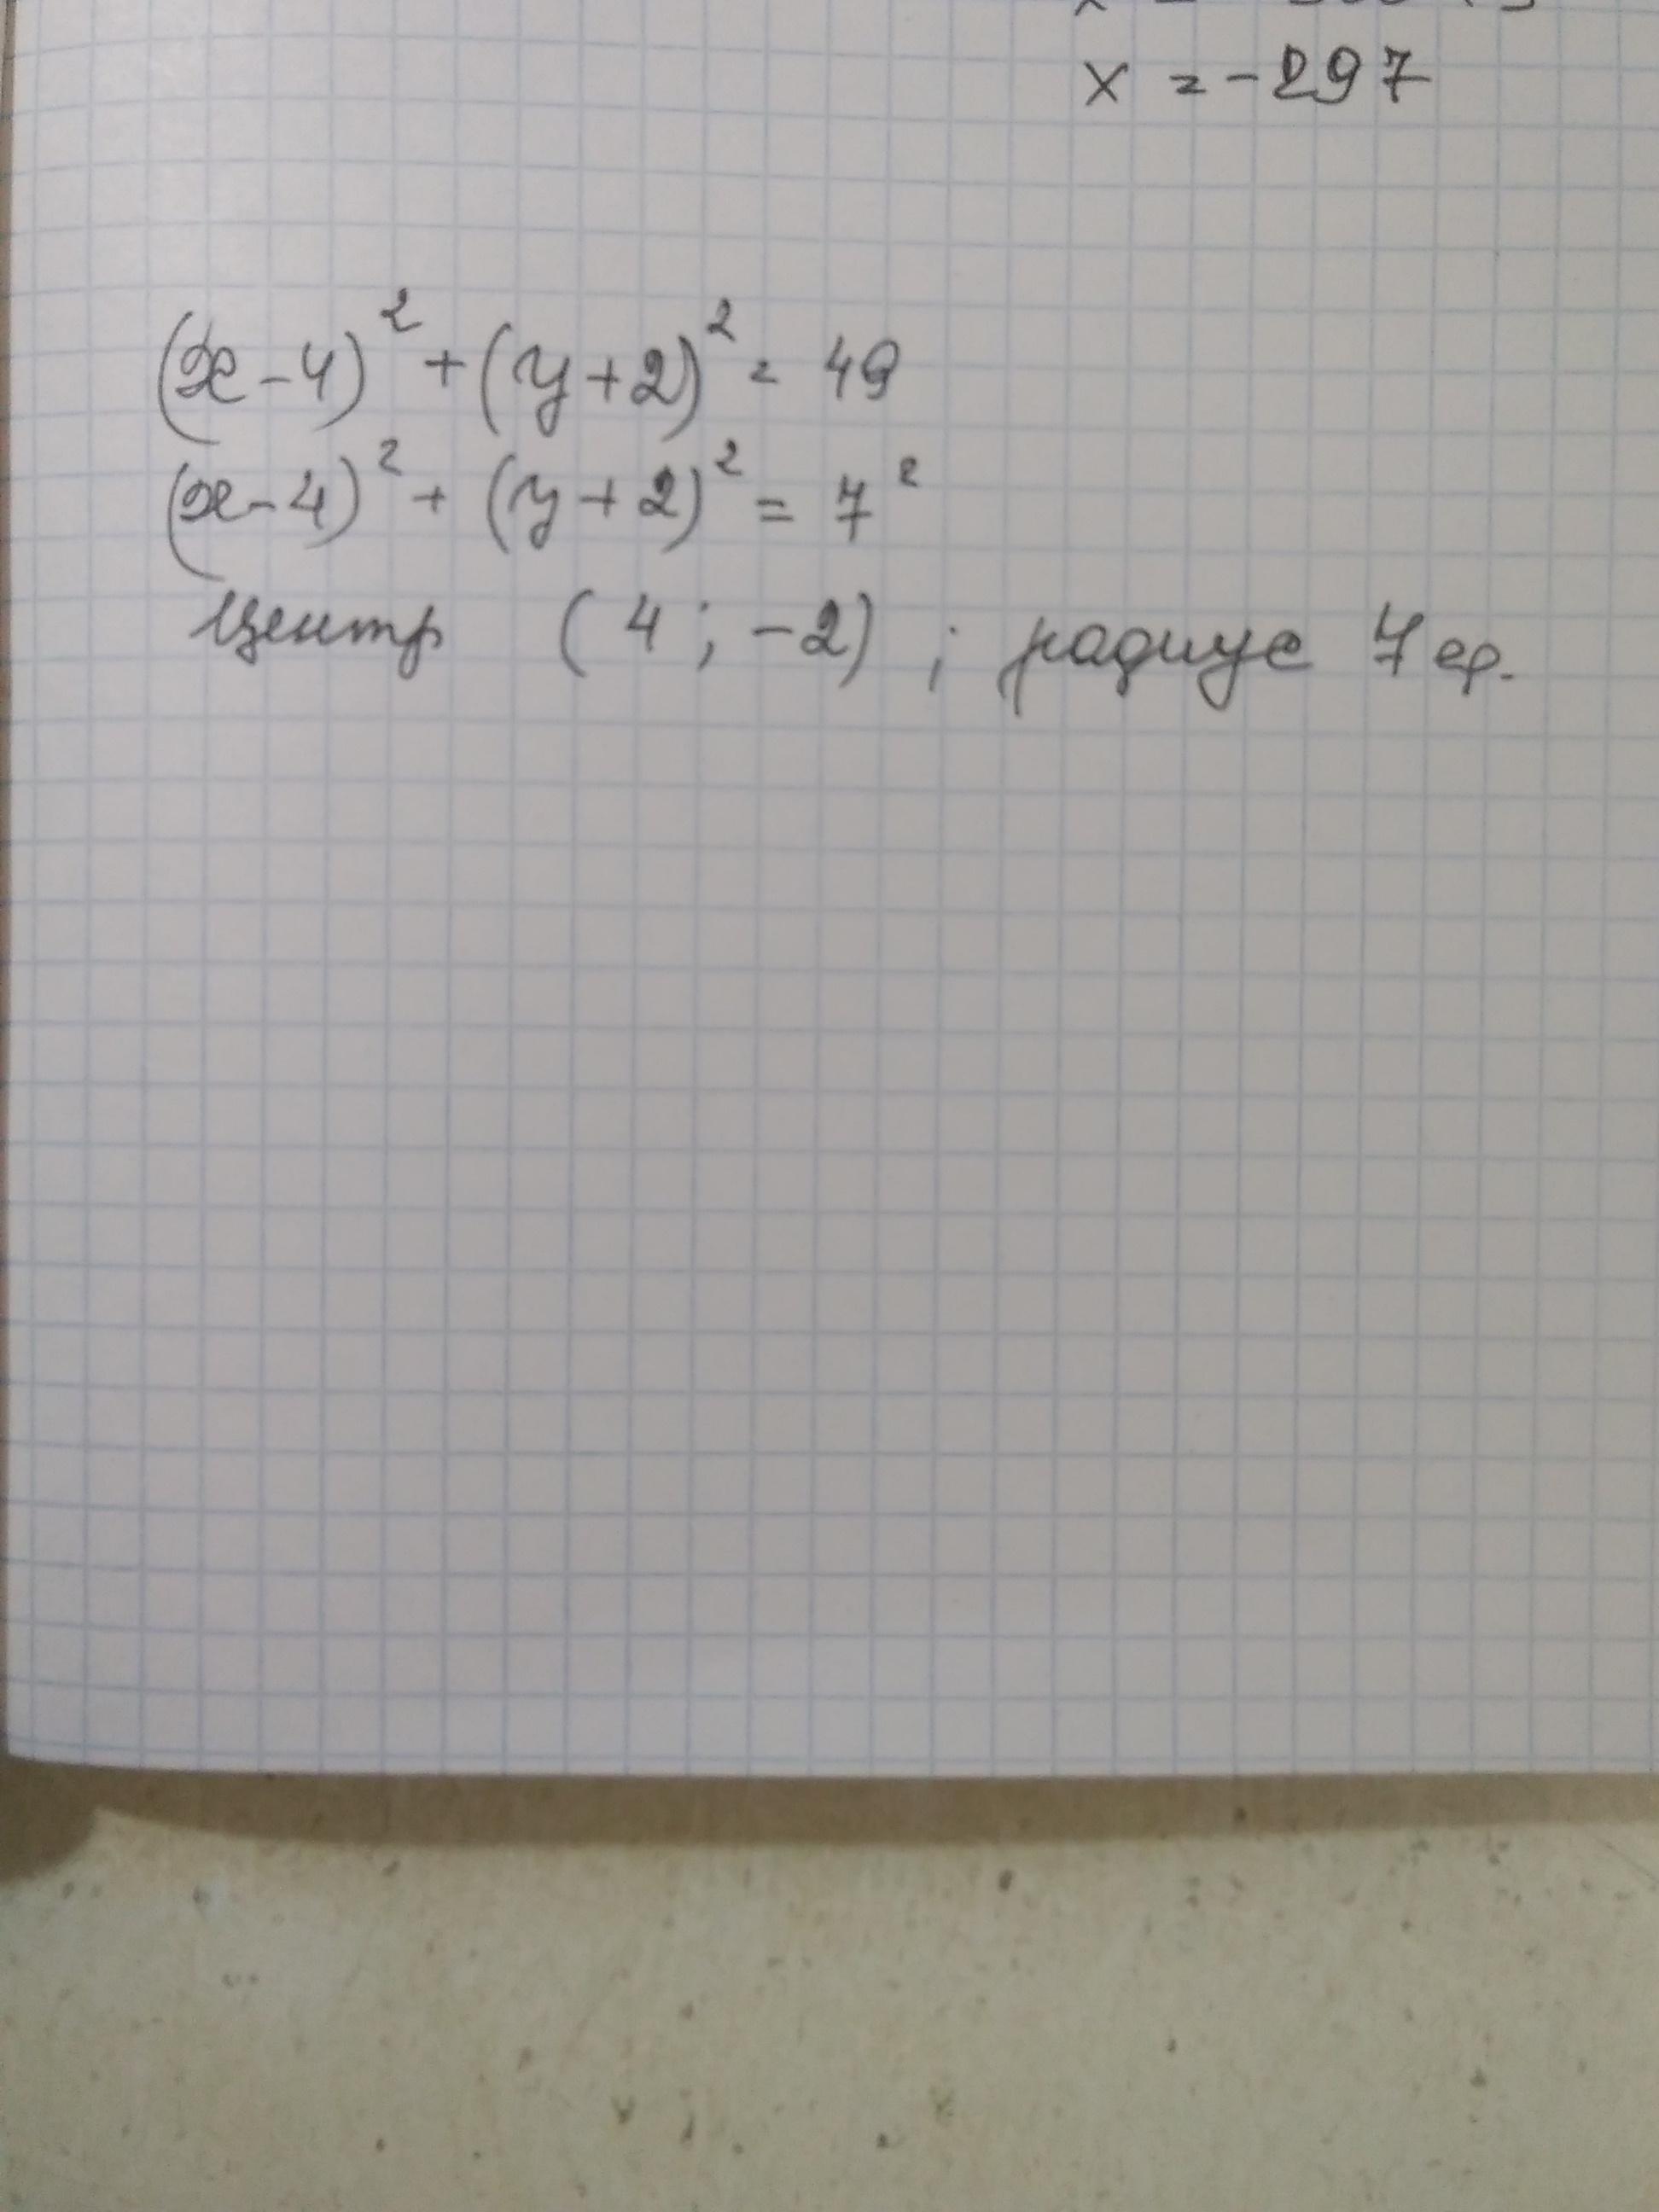 x = -297
(x-4)² + (y+2)² = 49
(x-4)² + (y+2)² = 7²
Центр (4; -2); радиус 7 ер.